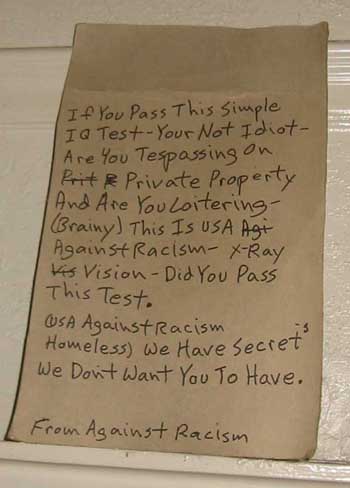 If You Pass This Simple
IQ Test-Your Not Idiot-
Are You Tespassing On
Private Property
And Are You Loitering-
(Brainy) This Is USA
Against Racism- X-Ray
Vision-Did You Pass
This Test.
(USA Against Racism
Homeless) We Have Secret-s
We Don't Want You To Have.
From Against Racism